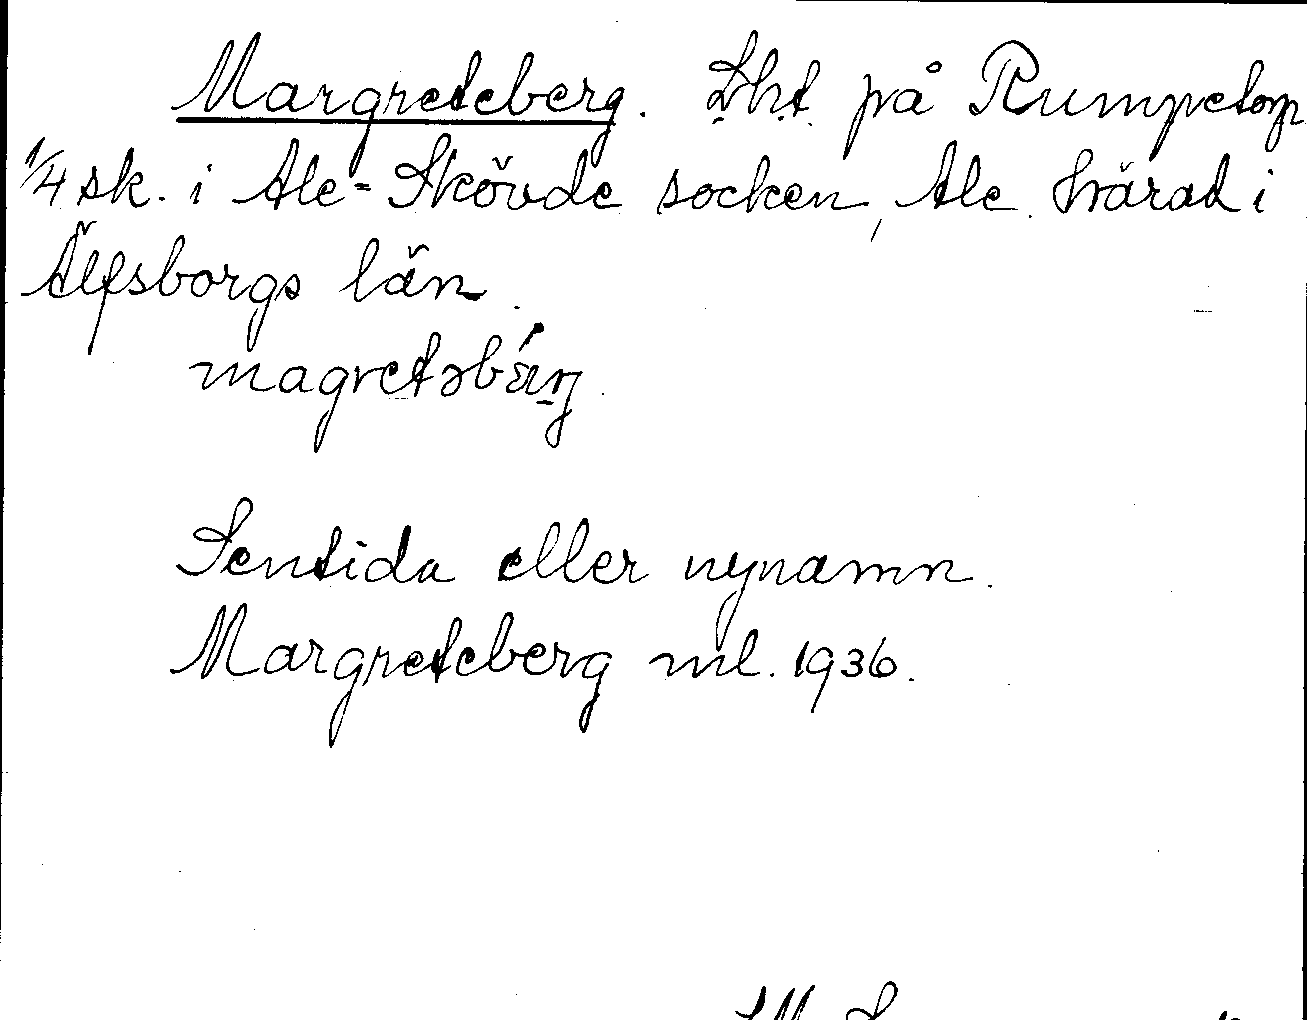 Margreteberg. Lht. på Rumpetorp
1/4 sk. i Ale-Skövde socken, Ale härad i
Älfsborgs län.
magretəbärj.
Sentida eller nynamn.
Margreteberg ml. 1936.